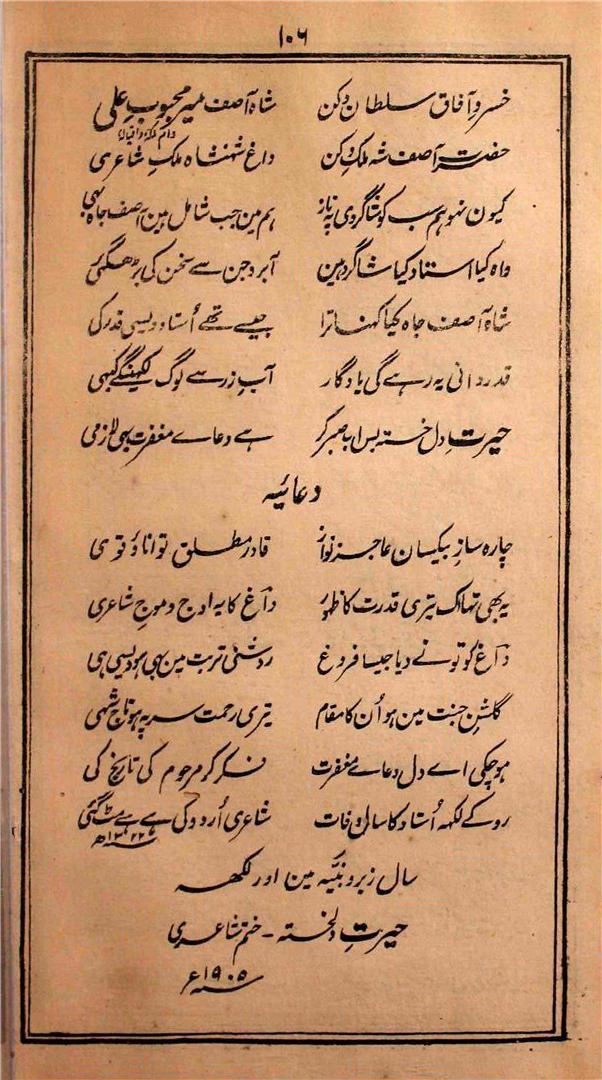 ۱۰۶
خسروِ آفاق سلطانِ دکن شاہ آصف میر محبوبِ علی
دام ملکہ و اقبالہ
حضرت آصف شہِ ملکِ دکن داغ شہنشاہ ملکِ شاعری
کیون نہو ہم سب کو شاگردی پہ ناز ہم مین جب شامل ہین آصف جاہ بھی
واہ کیا استاد کیا شاگرد ہین آبرو جن سے سخن کی بڑھ گئی
شاہ آصف جاہ کیا کہنا ترا جیسے تھے اُستاد ویسی قدر کی
قدردانی یہ رہے گی یادگار آبِ زر سے لوگ لکھینگے کبھی
حیرتِ دل خستہ بس اب صبر کر ہے دعاے مغفرت بھی لازمی
دعائیہ
چارہ سازِ بیکسان عاجز نواز قادر مطلق توانا و قوی
یہ بھی تھا اک تیری قدرت کا ظہور داغ کا یہ اوج و موجِ شاعری
داغ کو تونے دیا جیسا فروغ روشنی تربت مین بھی ہو ویسی ہی
گلشنِ جنت مین ہو اُن کا مقام تیری رحمت سر پہ ہو تاجِ شہی
ہو چکی اے دل دعاے مغفرت فکر کر مرحوم کی تاریخ کی
رو کے لکھہ اُستاد کا سالِ وفات شاعری اُردو کی ہے ہے مٹ گئی
سنہ ۱۳۲۲ھ
سال زبر و بنیّہ مین اور لکھہ
حیرتِ دلخستہ ۔ ختم شاعری
سنہ ۱۹۰۵ع